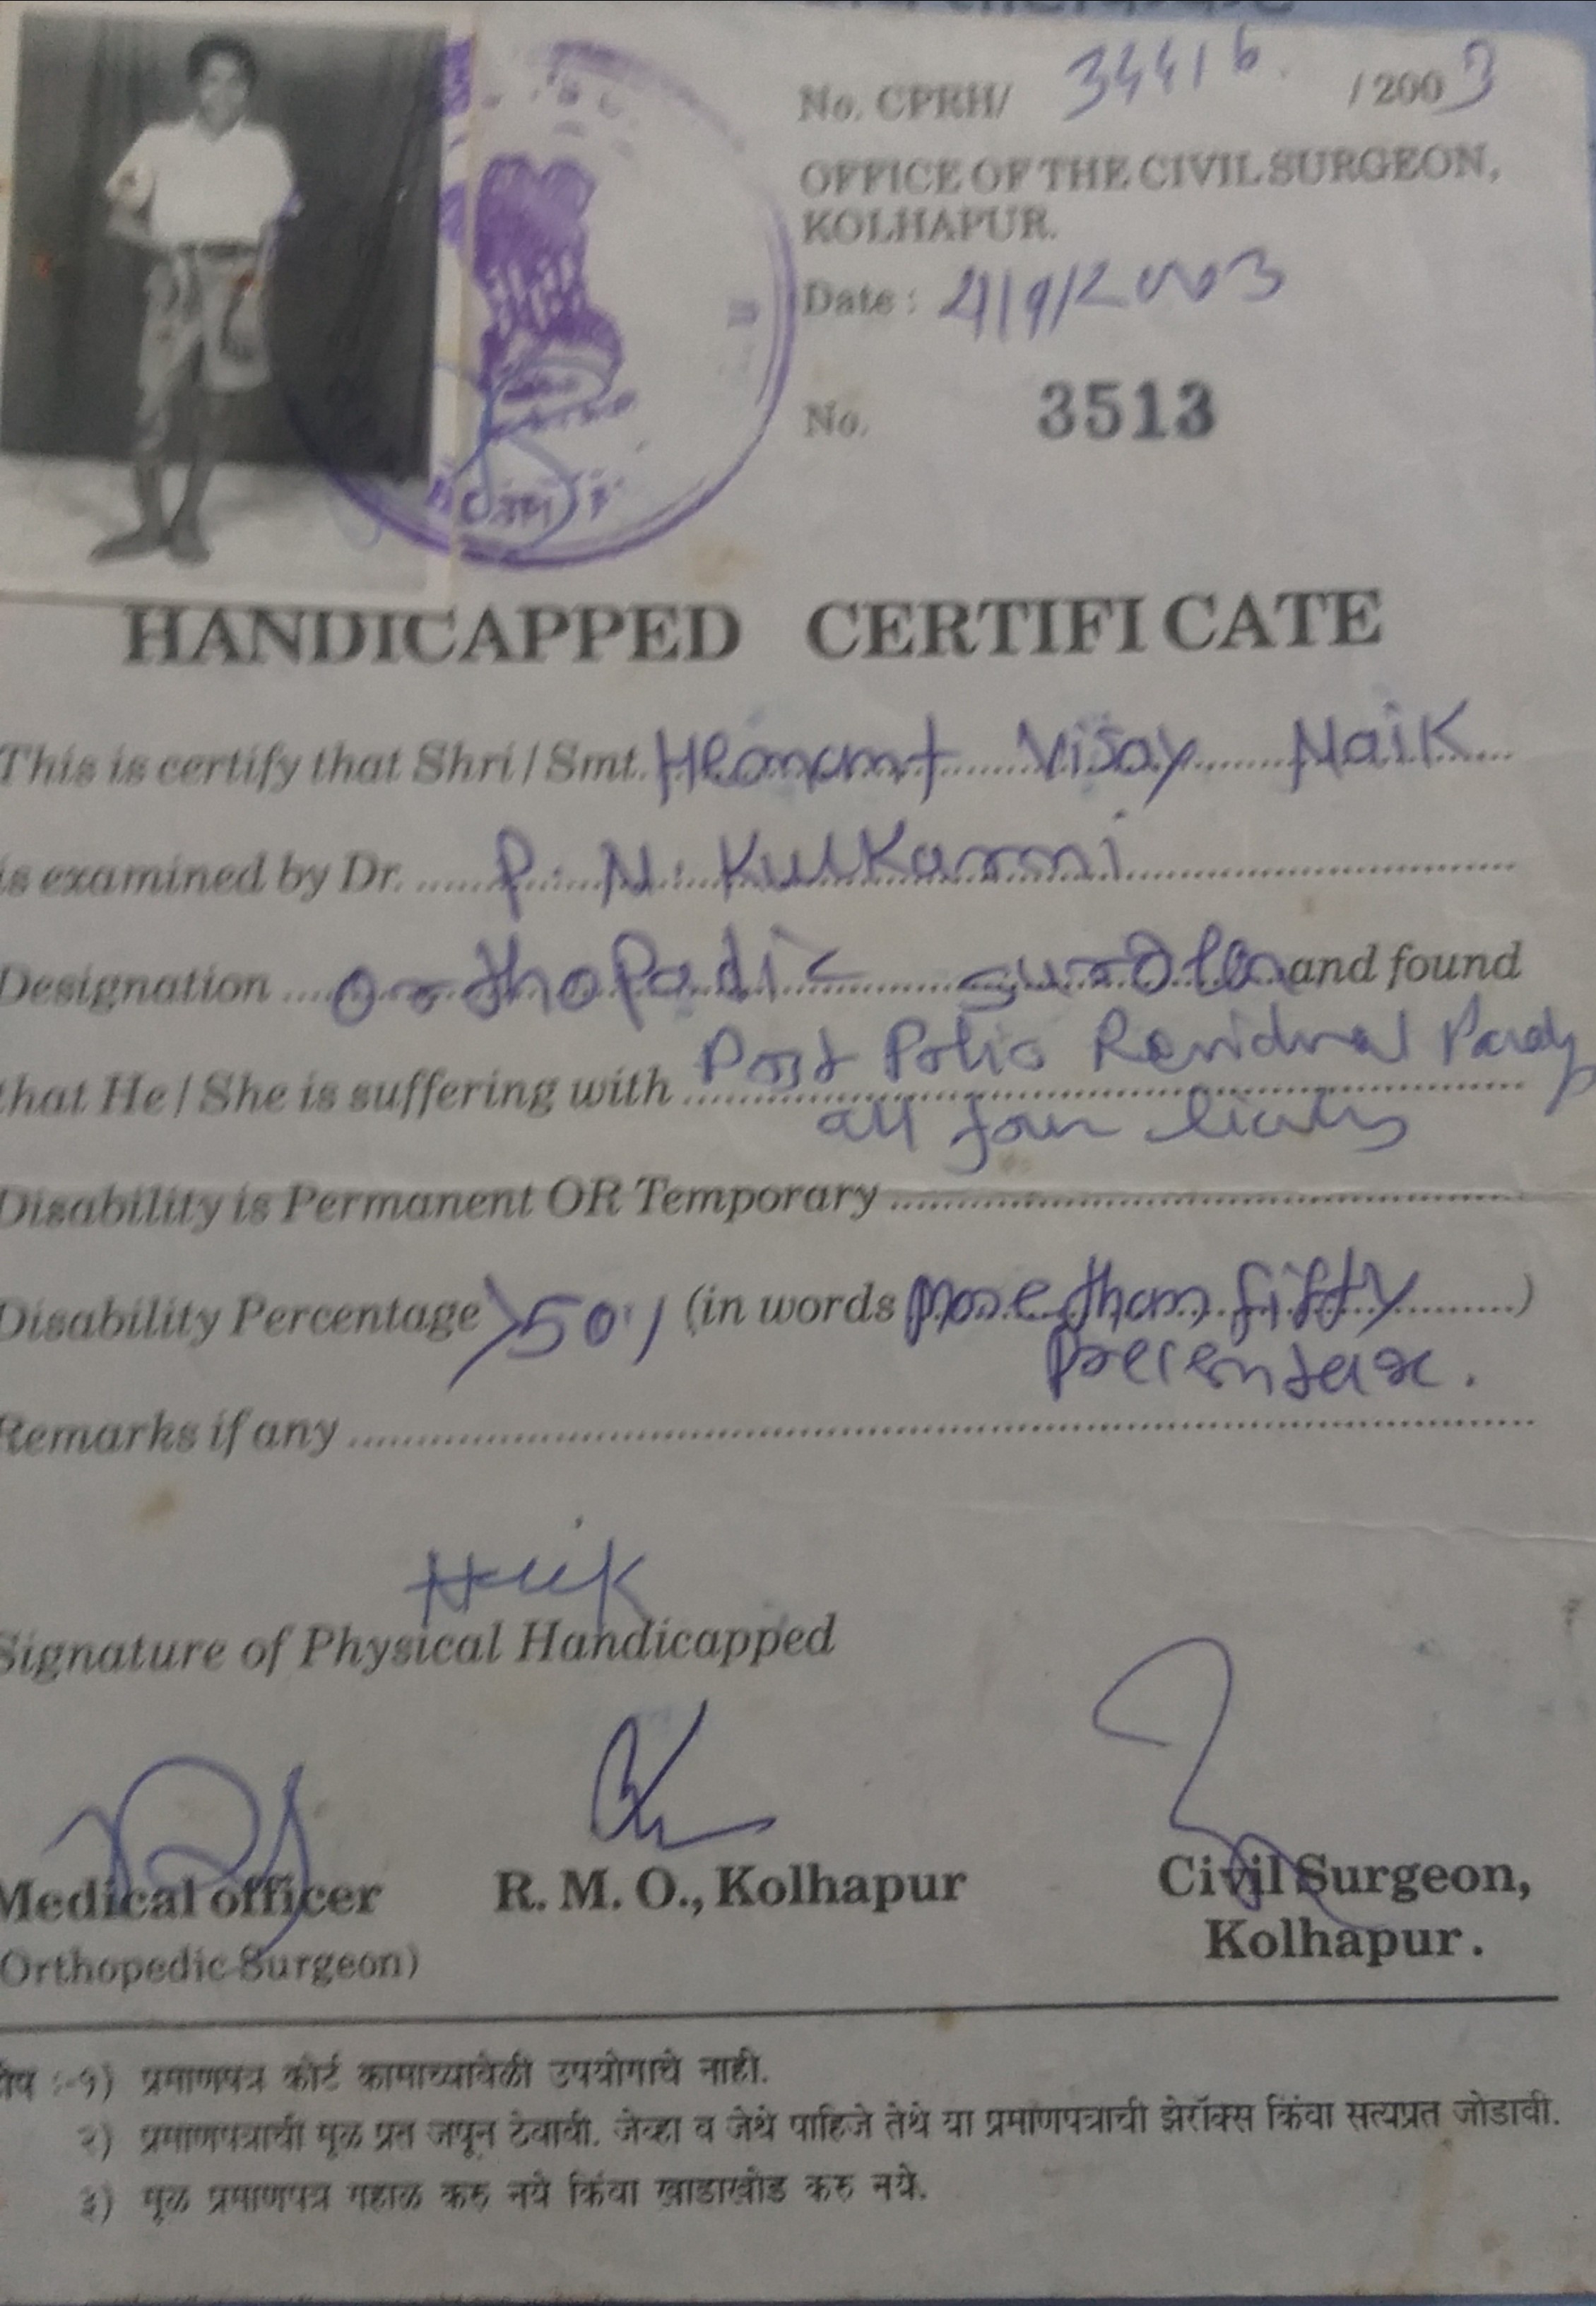 No. CPRH/ 34416 / 2003
OFFICE OF THE CIVIL SURGEON,
KOLHAPUR.
Date : 4/9/2003
No. 3513
HANDICAPPED CERTIFICATE
This is certify that Shri / Smt. Hemant Vijay Naik
is examined by Dr. P. N. Kulkarni
Designation orthopadic and found
that He / She is suffering with Post Polio Residual
all four limbs
Disability is Permanent OR Temporary
Disability Percentage >50% (in words More than fifty )
Remarks if any
Signature of Physical Handicapped
Medical officer R. M. O., Kolhapur Civil Surgeon,
(Orthopedic Surgeon) Kolhapur.
:-१) प्रमाणपत्र कोर्ट कामाच्यावेळी उपयोगाचे नाही.
२) प्रमाणपत्राची मूळ प्रत जपून ठेवावी. जेव्हा व जेथे पाहिजे तेथे या प्रमाणपत्राची झेरॉक्स किंवा सत्यप्रत जोडावी.
३) मूळ प्रमाणपत्र गहाळ करु नये किंवा खाडाखोड करु नये.